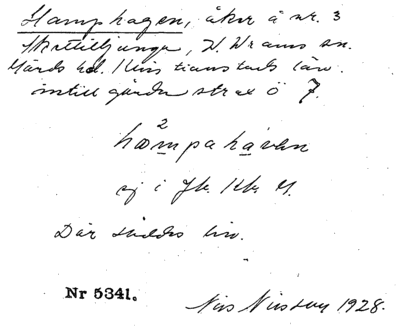 Hamphagen, åker å nr. 3
Skättilljunga, V. Vrams sn.
Gärds hd. Kristianstads län.
intill gården strax ö 7.
2
hampahaven
ej i Jb. Kb. G.
Där såddes lin.
Nr 5341.
Nils Nilsson 1928.